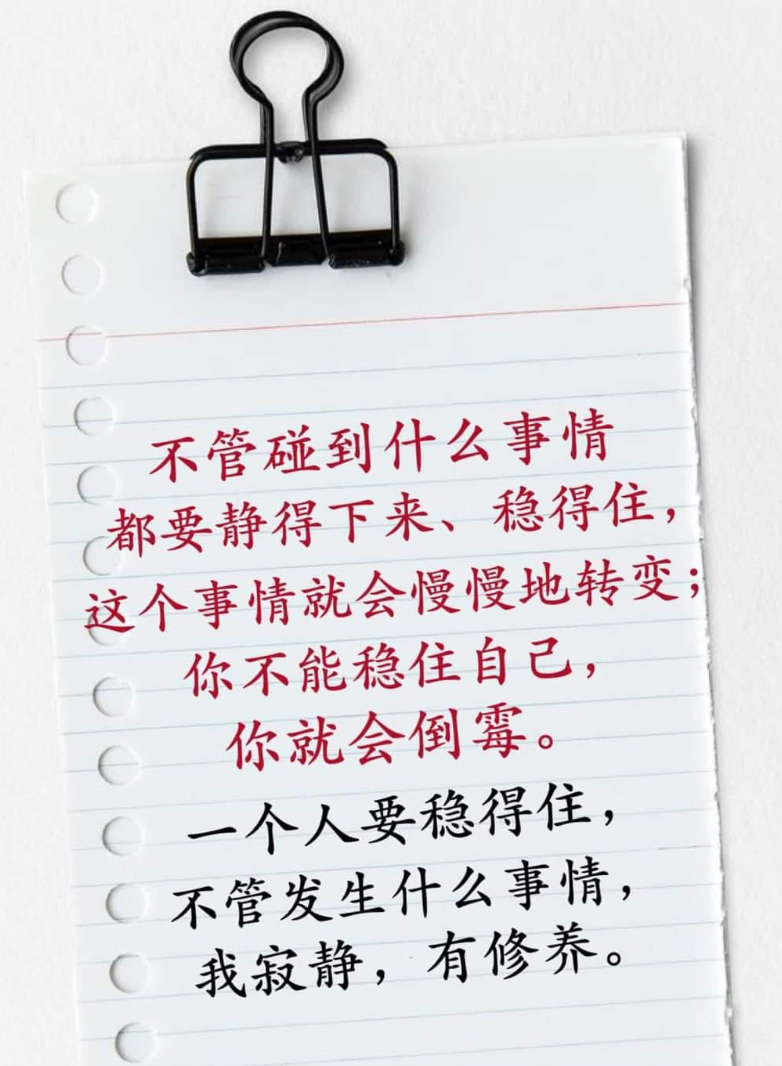 不管碰到什么事情
都要静得下来、稳得住，
这个事情就会慢慢地转变；
你不能稳住自己，
你就会倒霉。
一个人要稳得住，
不管发生什么事情，
我寂静，有修养。